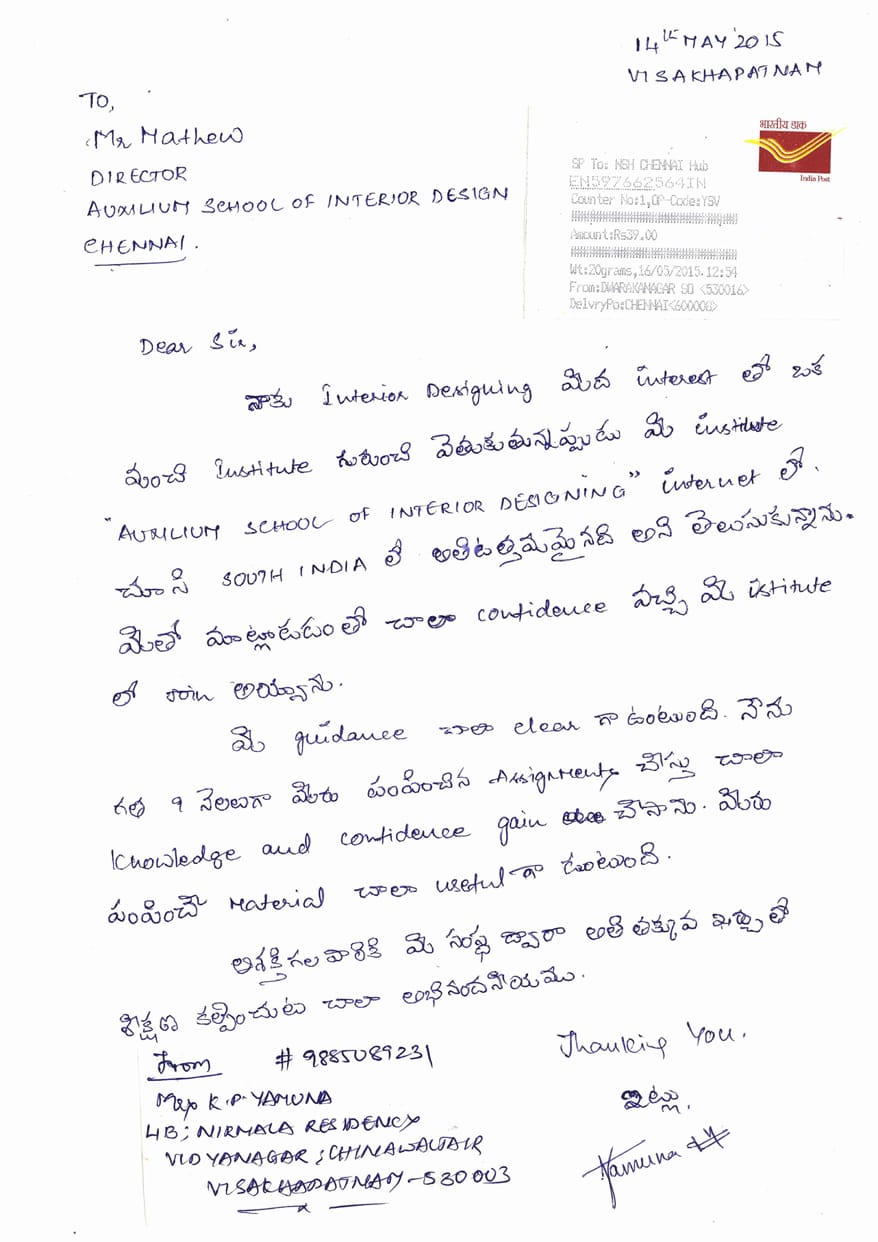 14th MAY 2015
VISAKHAPATNAM
TO,
Mr Mathew
DIRECTOR
AUXILIUM SCHOOL OF INTERIOR DESIGN
CHENNAI.
भारतीय डाक
India Post
SP To: NSH CHENNAI Hub
EN597662564IN
Counter No:1,OP-Code:YSV
Amount:Rs39.00
Wt:20grams,16/05/2015.12:54
From:DWARAKANAGAR SO <530016>
DelvryPo:CHENNAI<600006>
Dear Sir,
నాకు Interior Designing మీద interest తో ఒక
మంచి Institute గురించి వెతుకుతున్నప్పుడు మీ institute
"AUXILIUM SCHOOL OF INTERIOR DESIGNING" internet లో.
చూసి SOUTH INDIA లో అతిఉత్తమమైనది అని తెలుసుకున్నాను.
మీతో మాట్లాడడంతో చాలా confidence వచ్చి మీ istitute
లో Join అయ్యాను.
మీ guidance చాలా clear గా ఉంటుంది. నేను
గత 9 నెలలుగా మీరు పంపించిన Assignments చేస్తు చాలా
knowledge and confidence gain చేసాను. మీరు
పంపించే Material చాలా useful గా ఉంటుంది.
ఆసక్తిగల వారికి మీ సంస్థ ద్వారా అతి తక్కువ ఖర్చుతో
శిక్షణ కల్పించుట చాలా అభినందనీయము.
Thanking You.
ఇట్లు.
Yamuna
From # 9885089231
K.P. YAMUNA
4B; NIRMALA RESIDENCY
VIDYANAGAR; CHINAWALTAIR
VISAKHAPATNAM-530003